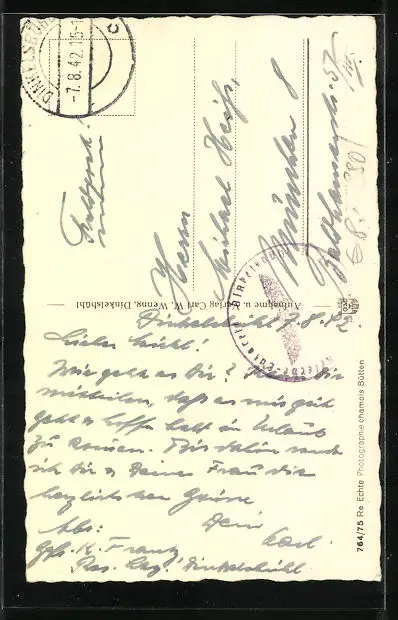 DINKELSBÜHL
-7.8.42.15-1
c
Feldpost!
Herrn
Michael Heiß,
München 8
57/III.
Aufnahme u. Verlag Carl W. Wenng, Dinkelsbühl
Dinkelsbühl 7.8.42.
Lieber Michl!
Wie geht es Dir? Dir
mitteilen, daß es mir gut
geht & hoffe bald in Urlaub
zu kommen. Bis dahin sende
ich Dir & Deiner Frau die
herzlichsten Grüsse
Dein
Karl.
Abs:
Gefr. K. Frantz
Res. Laz. Dinkelsbühl
764/75 Re Echte Photographie chamois Bütten